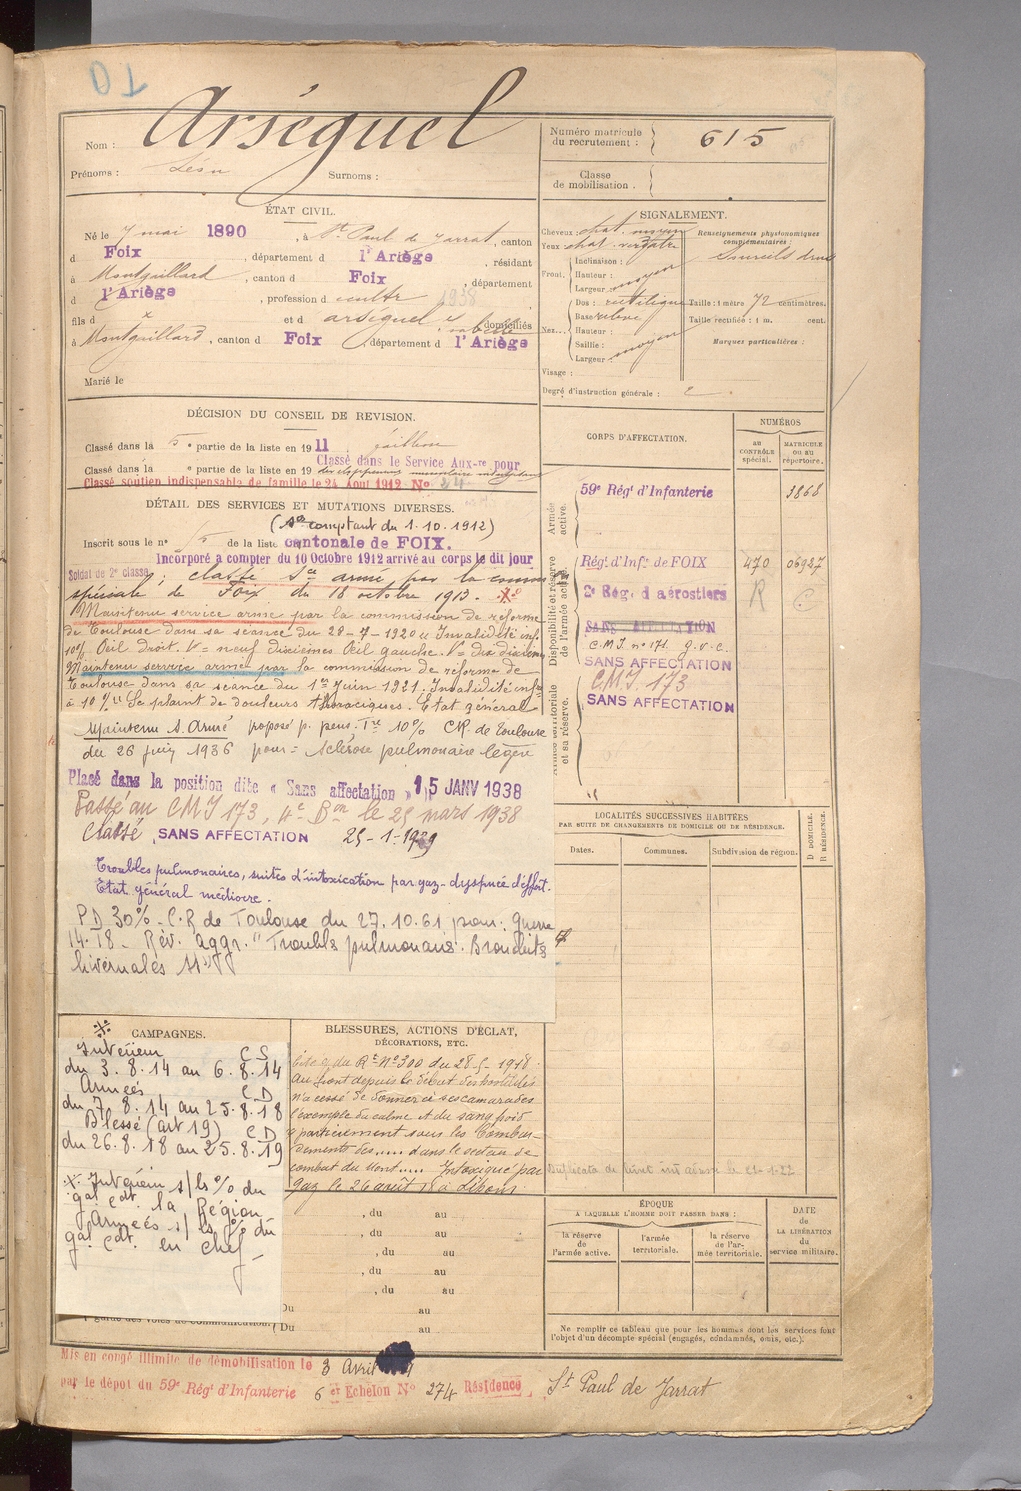 Nom : Arséguel
Prénoms : Léon Surnoms :
Numéro matricule du recrutement : 615
Classe de mobilisation .
ÉTAT CIVIL.
Né le 7 mai 1890 , à St Paul de Jarrat, canton
d Foix , département d l'Ariège , résidant
à Montgaillard , canton d Foix , département
d l'Ariège , profession d cultr 1938
fils d x et d arséguel isabelle domiciliés
à Montgaillard, canton d Foix , département d l'Ariège
Marié le
SIGNALEMENT.
Cheveux : chat. moyen
Yeux chat. verdâtre
Front. Inclinaison :
Hauteur :
Largeur : moyen
Nez. Dos : rectiligne
Base
Hauteur :
Saillie :
Largeur : moyen
Visage :
Renseignements physionomiques complémentaires :
Sourcils drus
Taille : 1 mètre 72 centimètres.
Taille rectifiée : 1 m. cent.
Marques particulières :
Degré d'instruction générale : 2 .
DÉCISION DU CONSEIL DE REVISION.
Classé dans la 5 e partie de la liste en 19 11
Classé dans le Service Aux-re pour
Classé dans la e partie de la liste en 19
Classé soutien indispensable de famille le 24 Aout 1912 No 24
DÉTAIL DES SERVICES ET MUTATIONS DIVERSES.
( comptant du 1.10.1912)
Inscrit sous le no de la liste cantonale de FOIX.
Incorporé à compter du 10 Octobre 1912 arrivé au corps le dit jour
Soldat de 2e classe ; classé Sce armé par la comm on
spéciale de Foix du 18 octobre 1913.
Maintenu service armé par la commission de réforme
de Toulouse dans sa séance du 28-7-1920 Invalidité inf.
10% Oeil droit. V = neuf dixièmes Oeil gauche. V = dix dixièmes
Maintenu service armé par la commission de réforme de
Toulouse dans sa séance du 1er Juin 1921. Invalidité infre
à 10% Se plaint de douleurs thoraciques. Etat général
Maintenu S. Armé proposé p. pens. Tre 10% CR. de Toulouse
du 26 juin 1936 pour = sclérose pulmonaire légère
Placé dans la position dite « Sans affectation » 15 JANV 1938
Passé au CMI 173, 4e Bon le 25 mars 1938
Classé SANS AFFECTATION 25-1-1939
Troubles pulmonaires, suites d'intoxication par gaz - dyspnée d'effort.
Etat général médiocre.
PD 30% - C.R de Toulouse du 27.10.61 pour : guerre
14.18 - Rév. aggr. "Troubls pulmonaires. Bronchites
hivernales
CORPS D'AFFECTATION.
NUMÉROS
AU CONTRÔLE SPÉCIAL.
MATRICULE OU AU RÉPERTOIRE.
Armée active.
59e Régt d'Infanterie 3868
Disponibilité et réserve de l'armée active.
Régt d'Infie de FOIX 470 06927
2e Rég. d'aérostiers R C
SANS AFFECTATION
C.M.I. no 171 G.V.C.
SANS AFFECTATION
C.M.I. 173
SANS AFFECTATION
Armée territoriale et sa réserve.
LOCALITÉS SUCCESSIVES HABITÉES
PAR SUITE DE CHANGEMENTS DE DOMICILE OU DE RÉSIDENCE.
Dates. Communes. Subdivision de région. D DOMICILE. R RÉSIDENCE.
CAMPAGNES.
Intérieur C S
du 3.8.14 au 6.8.14
Armées C D
du 7.8.14 au 25.8.18
Blessé (art 19) C D
du 26.8.18 au 25.8.19
Intérieur s/ls % du
gal cdt la Région
Armées s/ ls % du
gal cdt en chef
BLESSURES, ACTIONS D'ÉCLAT,
DÉCORATIONS, ETC.
Cité o. du Rt No 300 du 28.5-1918
Au front depuis le début des hostilités
n'a cessé de donner à ses camarades
l'exemple du calme et du sang froid
dements des..... dans le secteur de
combat du Mont..... Intoxiqué par
gaz le 26 août 18 à
Du au
, du au
, du au
, du au
, du au
, du au
Du au
(Du au
ÉPOQUE
A LAQUELLE L'HOMME DOIT PASSER DANS :
la réserve de l'armée active.
l'armée territoriale.
la réserve de l'armée territoriale.
DATE de LA LIBÉRATION du service militaire.
Ne remplir ce tableau que pour les hommes dont les services font
l'objet d'un décompte spécial (engagés, condamnés, omis, etc.).
Mis en congé illimité de démobilisation le 3 Avril
par le dépôt du 59e Régt d'Infanterie 6 et Echelon No 274 Résidence St Paul de Jarrat